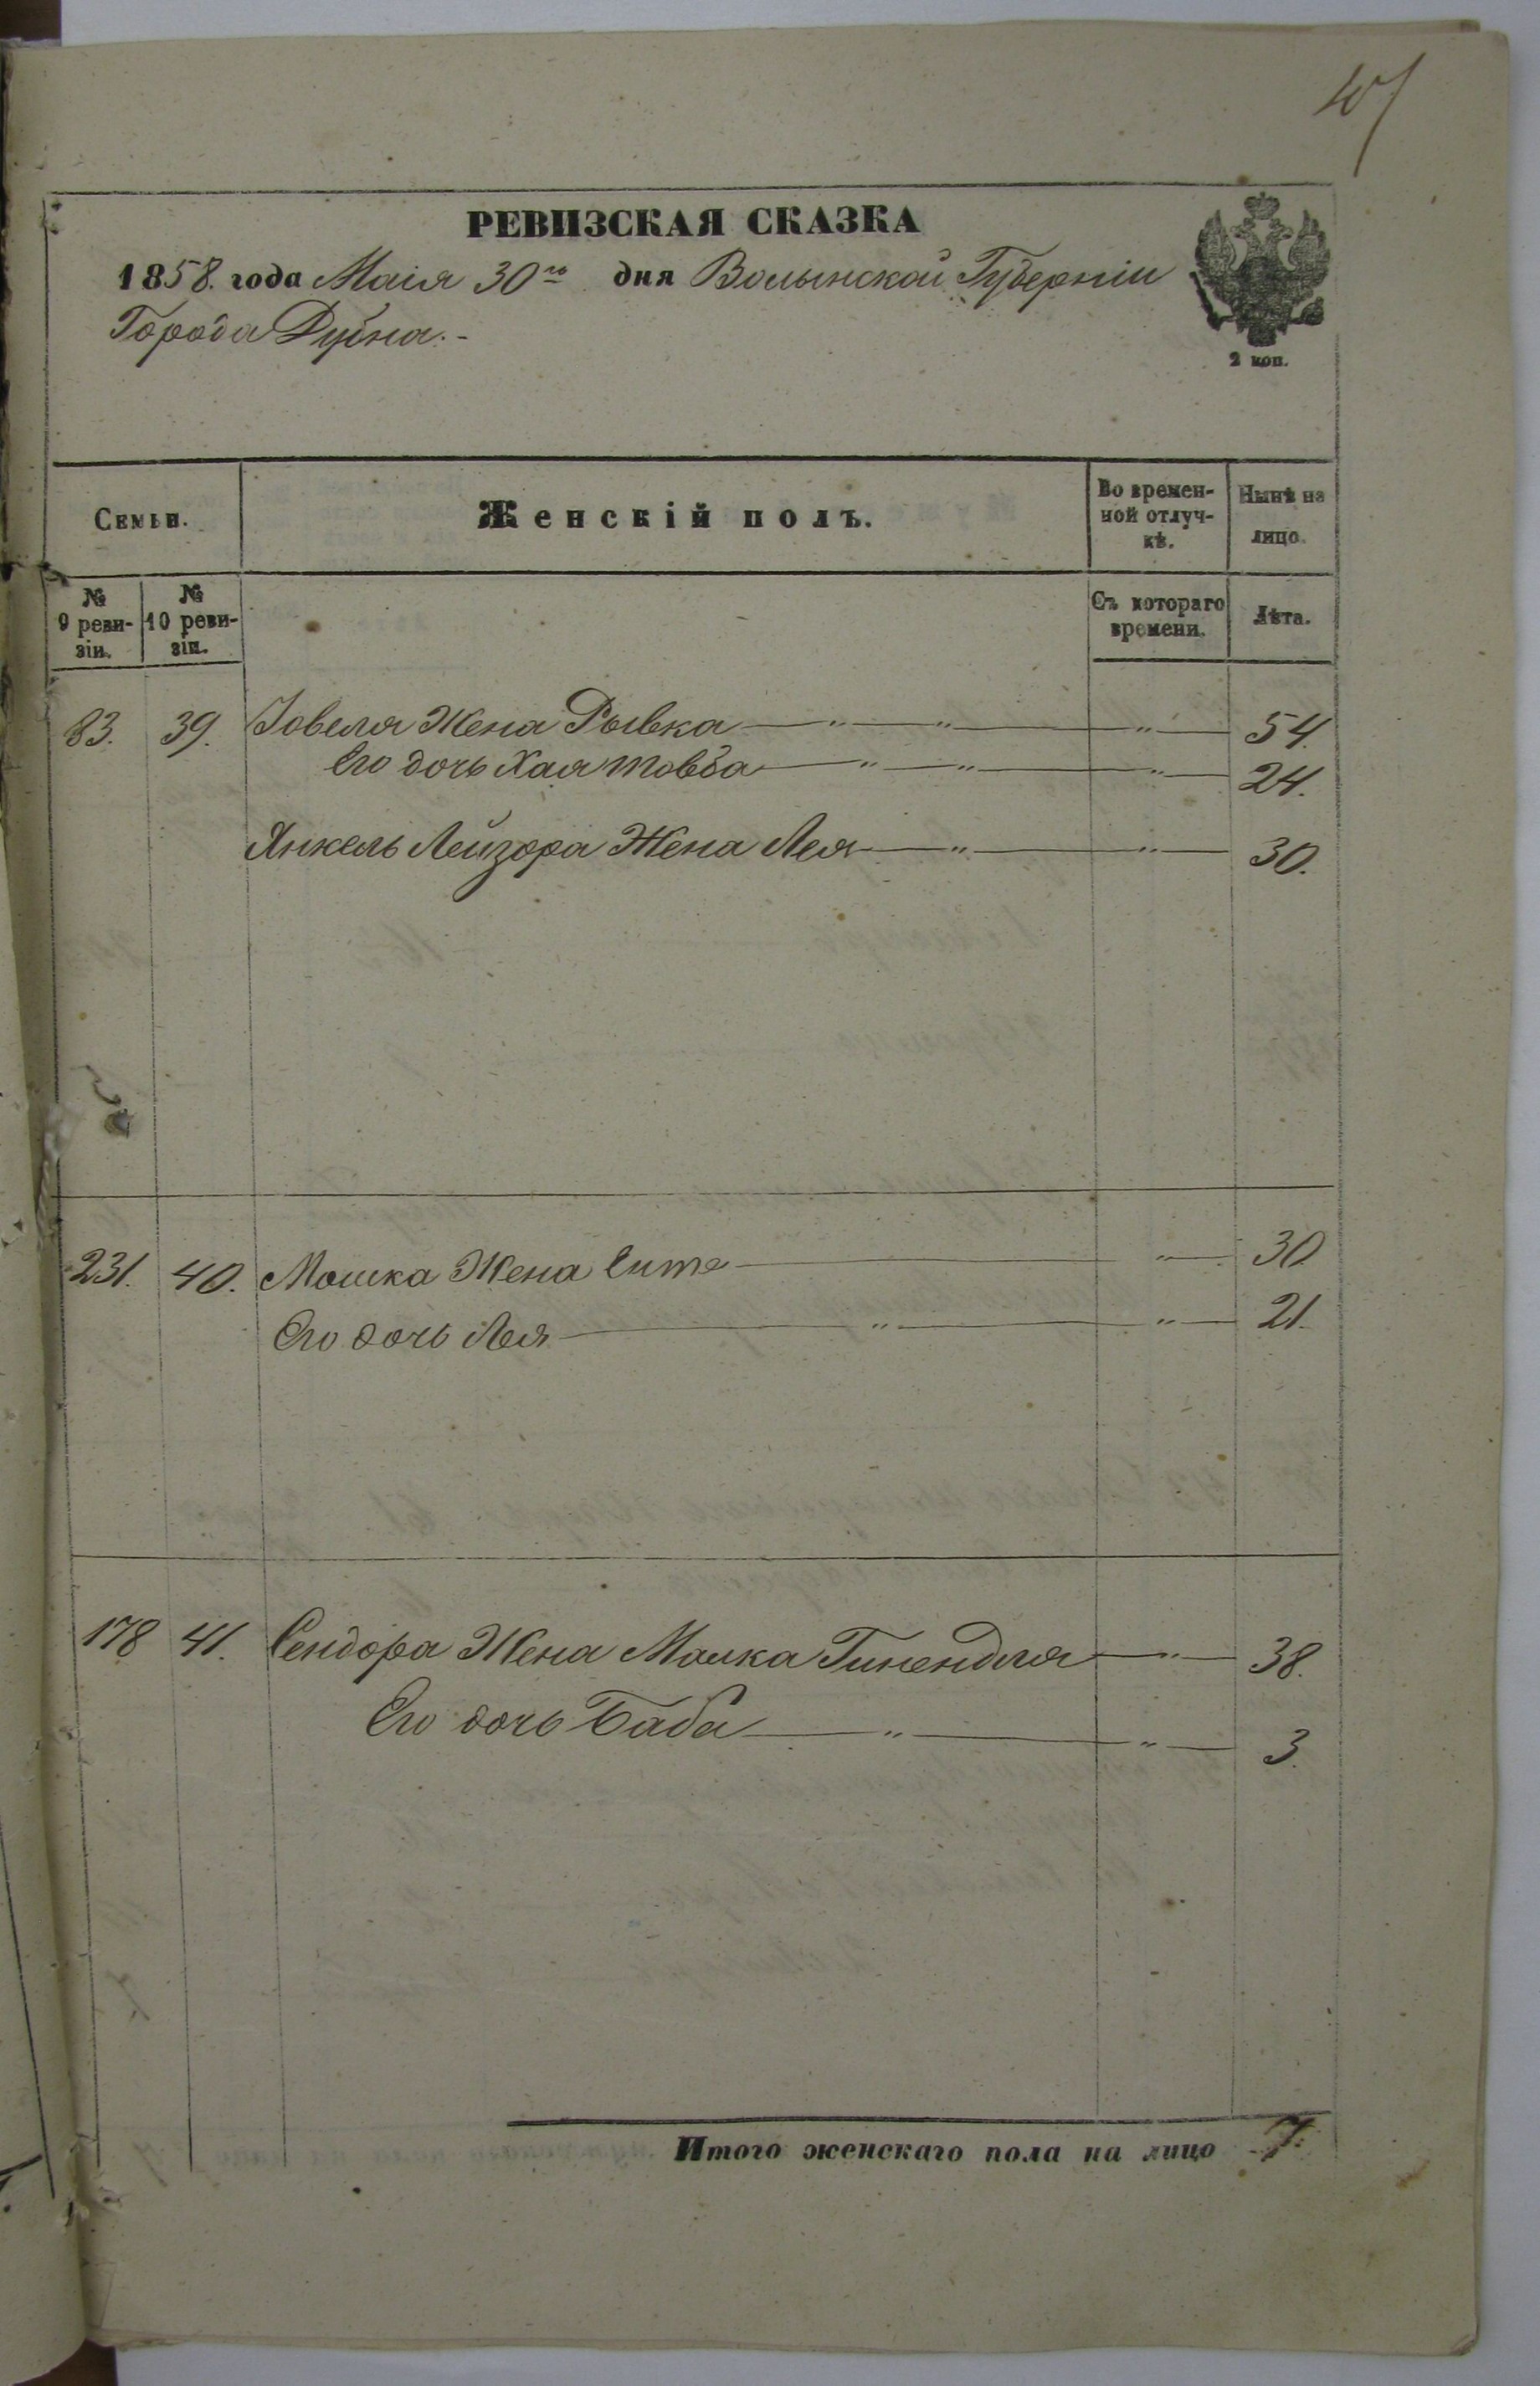 РЕВИЗСКАЯ СКАЗКА
1858. года Маія 30го дня Волынской Губерніи
Города Дубна.-
2 коп.
Семьи.
Женскій полъ.
Во времен-
ной отлуч-
кѣ.
Нынѣ на
лицо.
№
9 реви-
зіи.
№
10 реви-
зіи.
Съ котораго
времени.
Лѣта.
83. 39. Іовеля Жена Рывка — " — " — " — 54.
Его дочь Хая товба — " — " — " — 24.
Янкель Лейзора Жена Лея — " — " — 30.
231. 40. Мошка Жена Ента — " — 30
Его дочь Лея — " — " — 21.
178 41. Сендора Жена Малка Гинендля — " — 38.
Его дочь Баба — " — " — 3.
Итого женскаго пола на лицо 7.